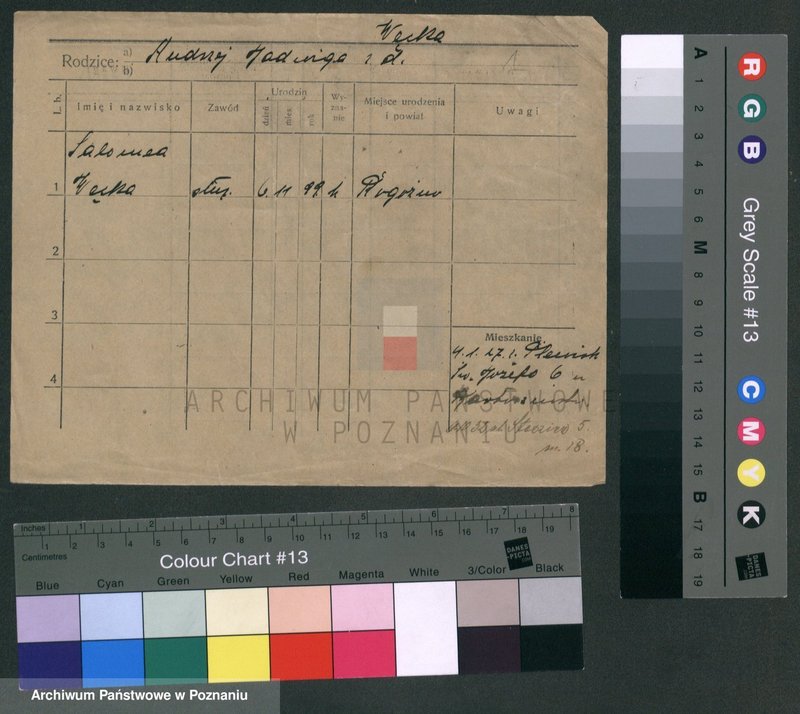 Węcka
Rodzice: a) Andrzej Jadwiga z d.
b)
1
L. b.
Imię i nazwisko
Zawód
Urodzin
dzień
mies.
rok
Wy-
zna-
nie
Miejsce urodzenia
i powiat
Uwagi
Salomea
1 Węcka służ. 6. 11 99 k Rogoźno
2
3
4
Mieszkanie
4.1.27. i.
Św. Józefa 6 u
5.
m. 18.
ARCHIWUM PAŃSTWOWE
W POZNANIU
Inches 1 2 3 4 5 6 7 8
1 2 3 4 5 6 7 8 9 10 11 12 13 14 15 16 17 18 19
Centimetres
Colour Chart #13
DANES
-PICTA
.COM
Blue Cyan Green Yellow Red Magenta White 3/Color Black
Grey Scale #13
R G B C M Y K
A 1 2 3 4 5 6 M 8 9 10 11 12 13 14 15 B 17 18 19
DANES
-PICTA
.COM
Archiwum Państwowe w Poznaniu